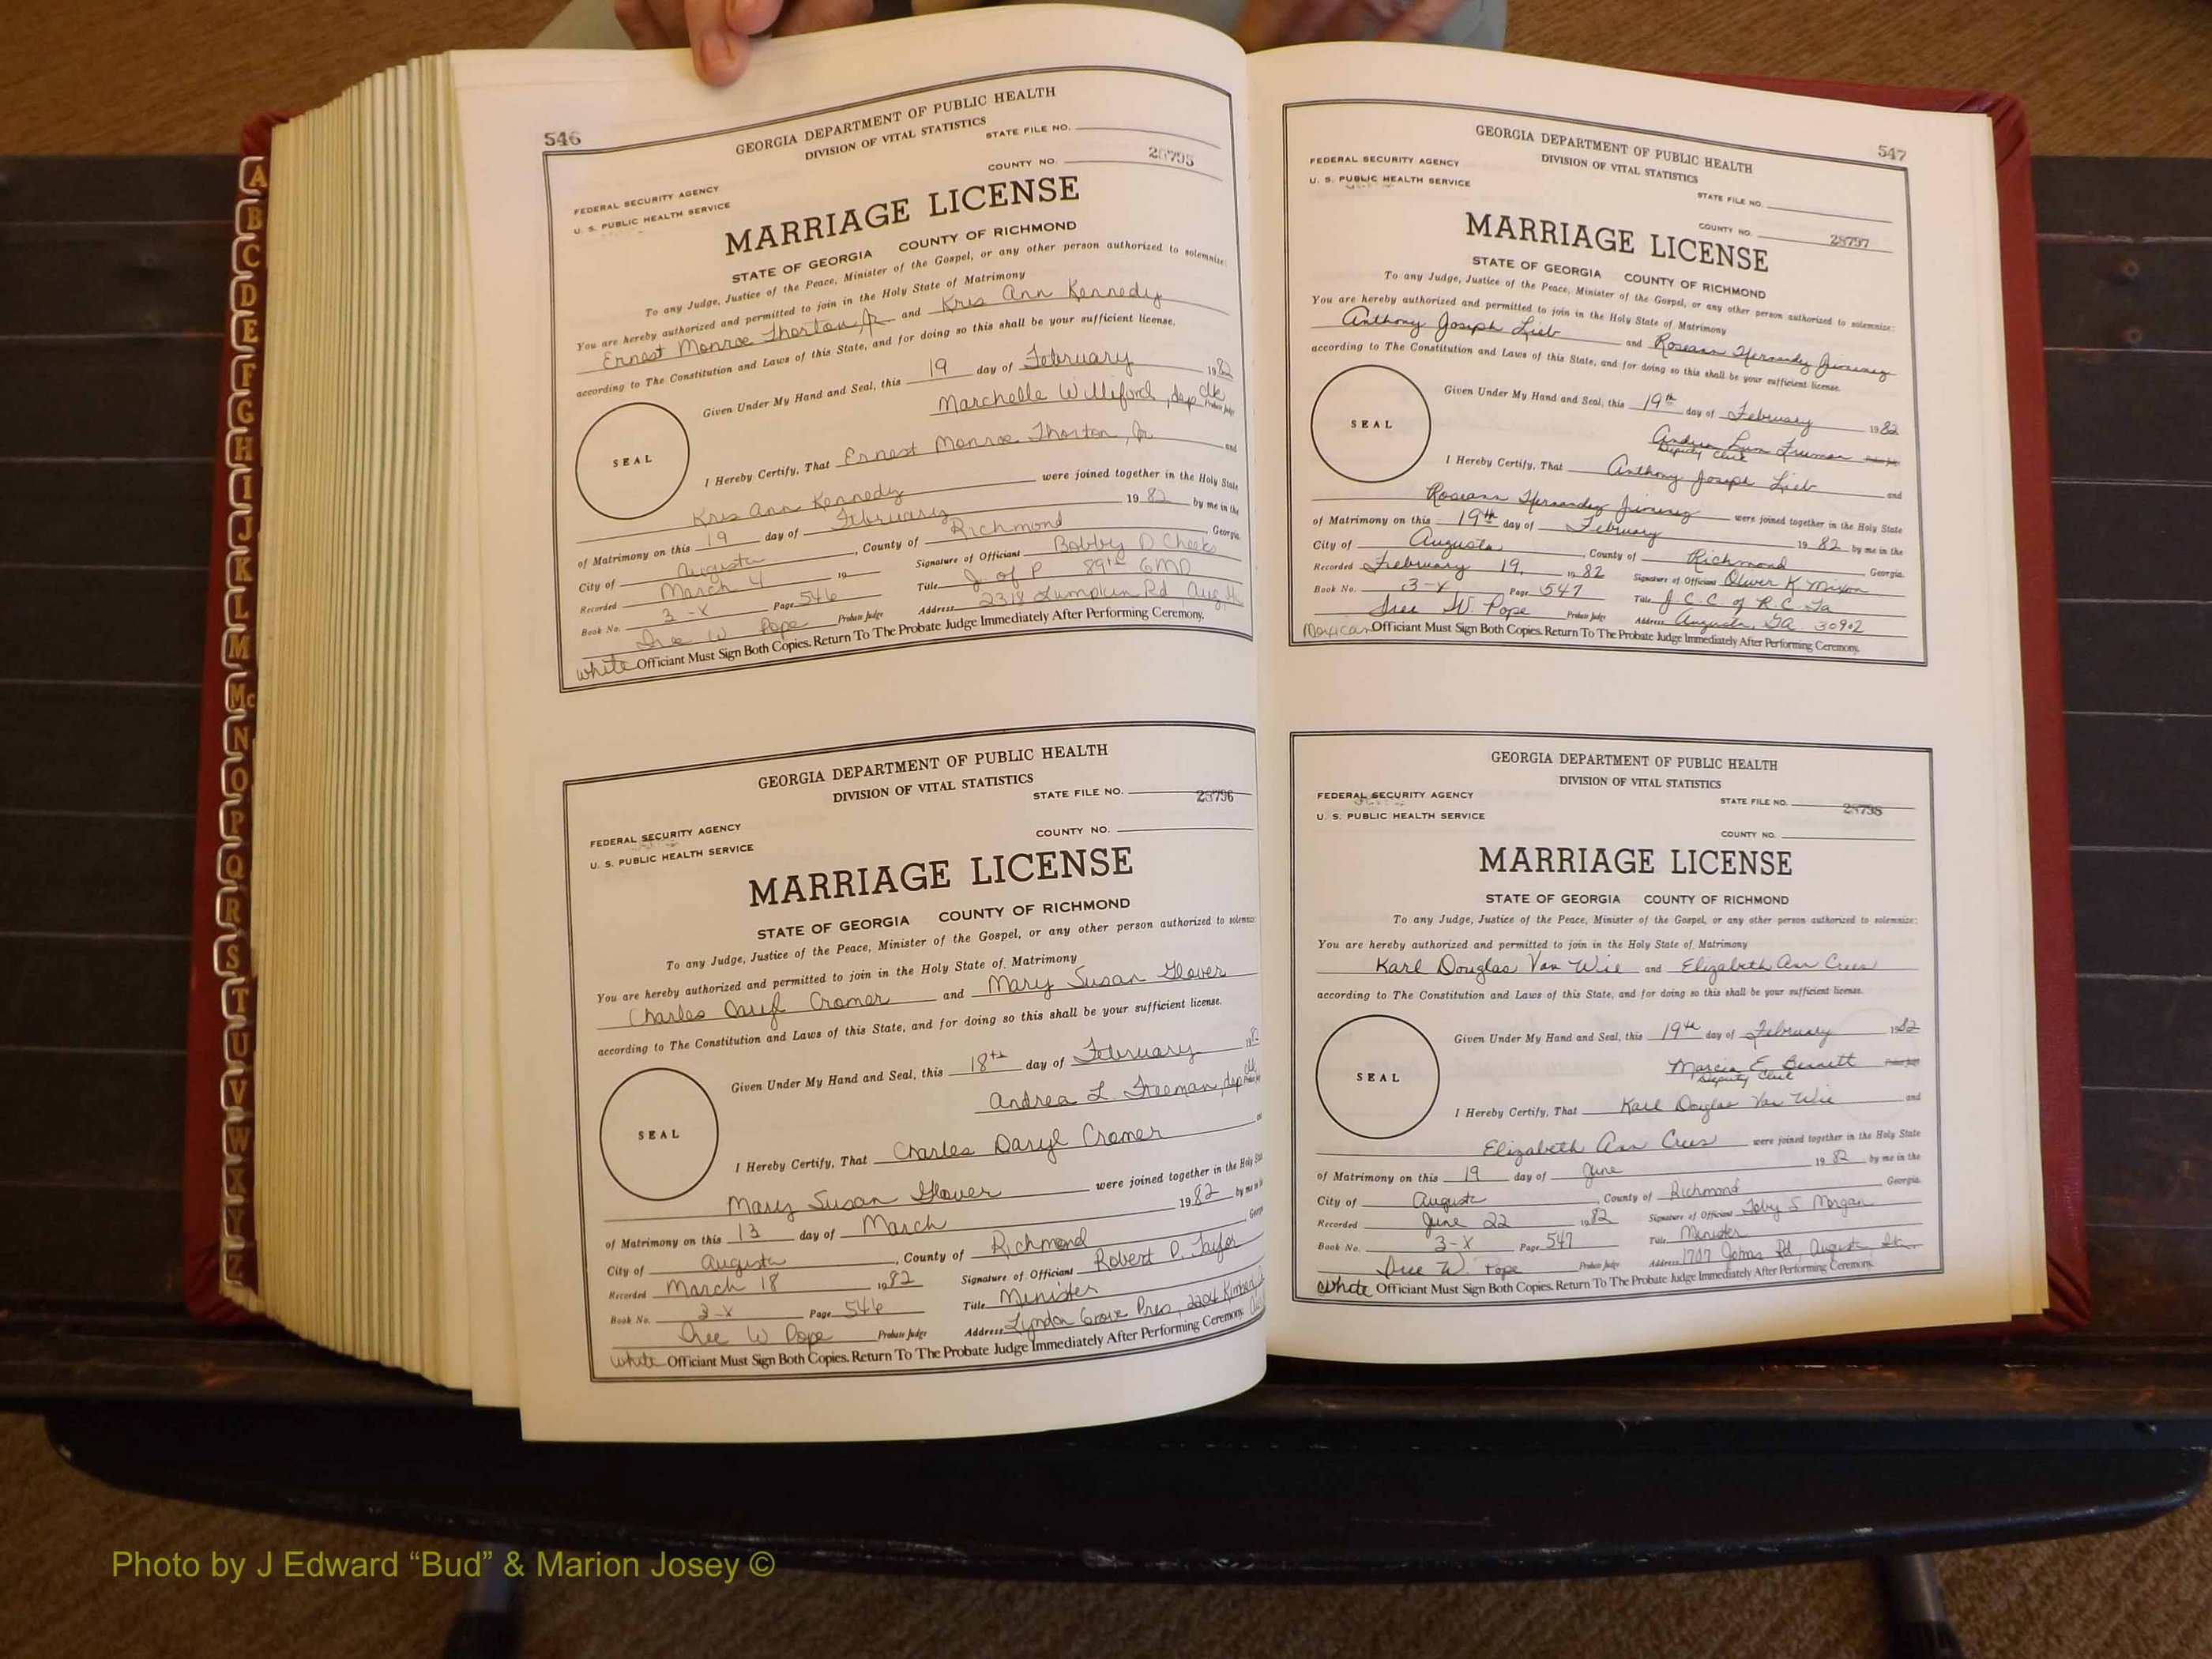 A
B
C
D
E
F
G
H
I
J
K
L
M
Mc
N
O
P
Q
R
S
T
U
V
W
X
Y
Z
546
GEORGIA DEPARTMENT OF PUBLIC HEALTH
DIVISION OF VITAL STATISTICS
STATE FILE NO.
COUNTY NO. 28795
FEDERAL SECURITY AGENCY
U. S. PUBLIC HEALTH SERVICE
MARRIAGE LICENSE
STATE OF GEORGIA COUNTY OF RICHMOND
To any Judge, Justice of the Peace, Minister of the Gospel, or any other person authorized to solemnize:
You are hereby authorized and permitted to join in the Holy State of Matrimony
Ernest Monroe Thorton, Jr and Kris Ann Kennedy
according to The Constitution and Laws of this State, and for doing so this shall be your sufficient license.
Given Under My Hand and Seal, this 19 day of February 1982
Marchelle Williford, dep clk Probate Judge
SEAL
I Hereby Certify, That Ernest Monroe Thorton, Jr and
Kris Ann Kennedy were joined together in the Holy State
of Matrimony on this 19 day of February 1982 by me in the
City of Augusta, County of Richmond Georgia.
Recorded March 4 19 Signature of Officiant Bobby D Cheeks
Book No. 3-X Page 546 Title J of P 89th GMD
Dree W Pope Probate Judge Address 2318 Lumpkin Rd Aug,
white Officiant Must Sign Both Copies. Return To The Probate Judge Immediately After Performing Ceremony.
GEORGIA DEPARTMENT OF PUBLIC HEALTH
DIVISION OF VITAL STATISTICS
STATE FILE NO. 28796
COUNTY NO.
FEDERAL SECURITY AGENCY
U. S. PUBLIC HEALTH SERVICE
MARRIAGE LICENSE
STATE OF GEORGIA COUNTY OF RICHMOND
To any Judge, Justice of the Peace, Minister of the Gospel, or any other person authorized to solemnize:
You are hereby authorized and permitted to join in the Holy State of Matrimony
Charles Daryl Cromer and Mary Susan Glover
according to The Constitution and Laws of this State, and for doing so this shall be your sufficient license.
Given Under My Hand and Seal, this 18th day of February 1982
Andrea L. Freeman, dep clk
SEAL
I Hereby Certify, That Charles Daryl Cromer
Mary Susan Glover were joined together in the Holy
of Matrimony on this 13 day of March 1982 by me in
City of Augusta, County of Richmond
Recorded March 18 1982 Signature of Officiant Robert D. Taylor
Book No. 3-X Page 546 Title Minister
Dree W Pope Probate Judge Address Lyndon Grove Pres, 2204
white Officiant Must Sign Both Copies. Return To The Probate Judge Immediately After Performing Ceremony.
547
GEORGIA DEPARTMENT OF PUBLIC HEALTH
DIVISION OF VITAL STATISTICS
FEDERAL SECURITY AGENCY
U. S. PUBLIC HEALTH SERVICE
STATE FILE NO.
COUNTY NO. 28797
MARRIAGE LICENSE
STATE OF GEORGIA COUNTY OF RICHMOND
To any Judge, Justice of the Peace, Minister of the Gospel, or any other person authorized to solemnize:
You are hereby authorized and permitted to join in the Holy State of Matrimony
Anthony Joseph Lieb and Roseann Hernandez Jimenez
according to The Constitution and Laws of this State, and for doing so this shall be your sufficient license.
Given Under My Hand and Seal, this 19th day of February 1982
Andrea Lum Freeman Probate Judge
Deputy Clerk
SEAL
I Hereby Certify, That Anthony Joseph Lieb and
Roseann Hernandez Jimenez were joined together in the Holy State
of Matrimony on this 19th day of February 1982 by me in the
City of Augusta, County of Richmond Georgia.
Recorded February 19, 1982 Signature of Officiant Oliver K Mixon
Book No. 3-X Page 547 Title J C.C. of R.C. Ga
Dree W. Pope Probate Judge Address Augusta, Ga 30902
Mexican Officiant Must Sign Both Copies. Return To The Probate Judge Immediately After Performing Ceremony.
GEORGIA DEPARTMENT OF PUBLIC HEALTH
DIVISION OF VITAL STATISTICS
FEDERAL SECURITY AGENCY
U. S. PUBLIC HEALTH SERVICE
STATE FILE NO. 28798
COUNTY NO.
MARRIAGE LICENSE
STATE OF GEORGIA COUNTY OF RICHMOND
To any Judge, Justice of the Peace, Minister of the Gospel, or any other person authorized to solemnize:
You are hereby authorized and permitted to join in the Holy State of Matrimony
Karl Douglas Van Wie and Elizabeth Ann Crees
according to The Constitution and Laws of this State, and for doing so this shall be your sufficient license.
Given Under My Hand and Seal, this 19th day of February 1982
Marcia E. Bennett Probate Judge
Deputy Clerk
SEAL
I Hereby Certify, That Karl Douglas Van Wie and
Elizabeth Ann Crees were joined together in the Holy State
of Matrimony on this 19 day of June 1982 by me in the
City of Augusta, County of Richmond Georgia.
Recorded June 22 1982 Signature of Officiant Toby S Morgan
Book No. 3-X Page 547 Title Minister
Dree W. Pope Probate Judge Address 1707 Johns Rd, Augusta, Ga.
white Officiant Must Sign Both Copies. Return To The Probate Judge Immediately After Performing Ceremony.
Photo by J Edward “Bud” & Marion Josey ©